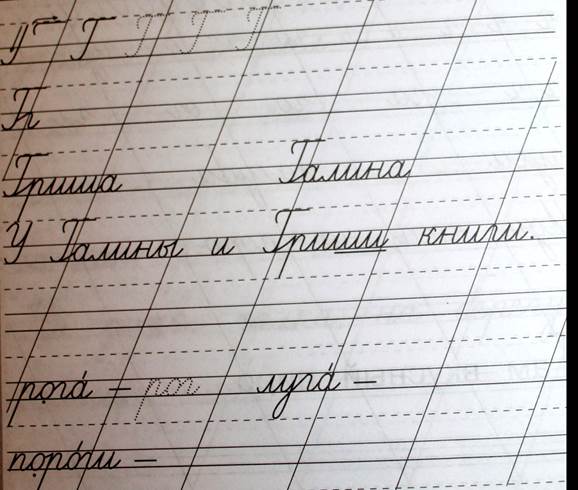 Г Г Г Г Г
Г
Гриша Галина
У Галины и Гриши книги.
рога́ – рог луга́ –
поро́ги –